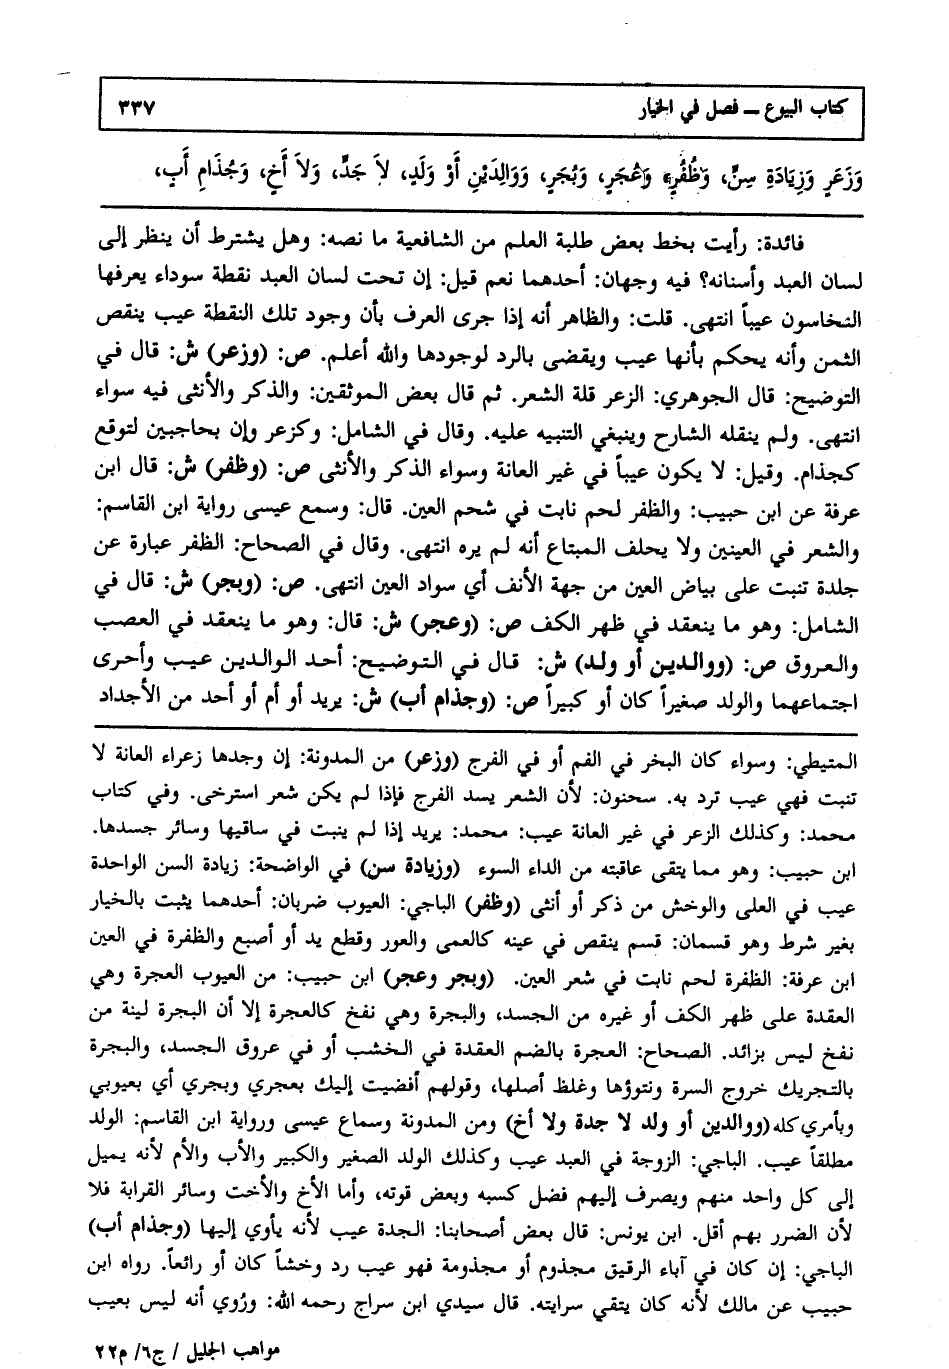 كتاب البيوع ــ فصل في الخيار
٣٣٧
وَزَعَرٍ وَزِيَادَةِ سِنٍّ، وَظُفُرٍ، وَعُجَرٍ، وَبُجَرٍ، وَوَالِدَيْنِ أَوْ وَلَدٍ، لاَ جَدٍّ، وَلاَ أَخٍ، وَجُذَامِ أَبٍ،
فائدة: رأيت بخط بعض طلبة العلم من الشافعية ما نصه: وهل يشترط أن ينظر إلى
لسان العبد وأسنانه؟ فيه وجهان: أحدهما نعم قيل: إن تحت لسان العبد نقطة سوداء يعرفها
النخاسون عيباً انتهى. قلت: والظاهر أنه إذا جرى العرف بأن وجود تلك النقطة عيب ينقص
الثمن وأنه يحكم بأنها عيب ويقضى بالرد لوجودها والله أعلم. ص: (وزعر) ش: قال في
التوضيح: قال الجوهري: الزعر قلة الشعر. ثم قال بعض الموثقين: والذكر والأنثى فيه سواء
انتهى. ولم ينقله الشارح وينبغي التنبيه عليه. وقال في الشامل: وكزعر وإن بحاجبين لتوقع
كجذام. وقيل: لا يكون عيباً في غير العانة وسواء الذكر والأنثى ص: (وظفر) ش: قال ابن
عرفة عن ابن حبيب: والظفر لحم نابت في شحم العين. قال: وسمع عيسى رواية ابن القاسم:
والشعر في العينين ولا يحلف المبتاع أنه لم يره انتهى. وقال في الصحاح: الظفر عبارة عن
جلدة تنبت على بياض العين من جهة الأنف أي سواد العين انتهى. ص: (وبجر) ش: قال في
الشامل: وهو ما ينعقد في ظهر الكف ص: (وعجر) ش: قال: وهو ما ينعقد في العصب
والعروق ص: (ووالدين أو ولد) ش: قال في التوضيح: أحد الوالدين عيب وأحرى
اجتماعهما والولد صغيراً كان أو كبيراً ص: (وجذام أب) ش: يريد أو أم أو أحد من الأجداد
المتيطي: وسواء كان البخر في الفم أو في الفرج (وزعر) من المدونة: إن وجدها زعراء العانة لا
تنبت فهي عيب ترد به. سحنون: لأن الشعر يسد الفرج فإذا لم يكن شعر استرخى. وفي كتاب
محمد: وكذلك الزعر في غير العانة عيب: محمد: يريد إذا لم ينبت في ساقيها وسائر جسدها.
ابن حبيب: وهو مما يتقى عاقبته من الداء السوء (وزيادة سن) في الواضحة: زيادة السن الواحدة
عيب في العلى والوخش من ذكر أو أنثى (وظفر) الباجي: العيوب ضربان: أحدهما يثبت بالخيار
بغير شرط وهو قسمان: قسم ينقص في عينه كالعمى والعور وقطع يد أو أصبع والظفرة في العين
ابن عرفة: الظفرة لحم نابت في شعر العين. (وبجر وعجر) ابن حبيب: من العيوب العجرة وهي
العقدة على ظهر الكف أو غيره من الجسد، والبجرة وهي نفخ كالعجرة إلا أن البجرة لينة من
نفخ ليس بزائد. الصحاح: العجرة بالضم العقدة في الخشب أو في عروق الجسد، والبجرة
بالتجريك خروج السرة ونتوؤها وغلظ أصلها، وقولهم أفضيت إليك بعجري وبجري أي بعيوبي
وبأمري كله (ووالدين أو ولد لا جدة ولا أخ) ومن المدونة وسماع عيسى ورواية ابن القاسم: الولد
مطلقاً عيب. الباجي: الزوجة في العبد عيب وكذلك الولد الصغير والكبير والأب والأم لأنه يميل
إلى كل واحد منهم ويصرف إليهم فضل كسبه وبعض قوته، وأما الأخ والأخت وسائر القرابة فلا
لأن الضرر بهم أقل. ابن يونس: قال بعض أصحابنا: الجدة عيب لأنه يأوي إليها (وجذام أب)
الباجي: إن كان في آباء الرقيق مجذوم أو مجذومة فهو عيب رد وخشاً كان أو رائعاً. رواه ابن
حبيب عن مالك لأنه كان يتقي سرايته. قال سيدي ابن سراج رحمه الله: ورُوي أنه ليس بعيب
مواهب الجليل / ج٦/ م٢٢